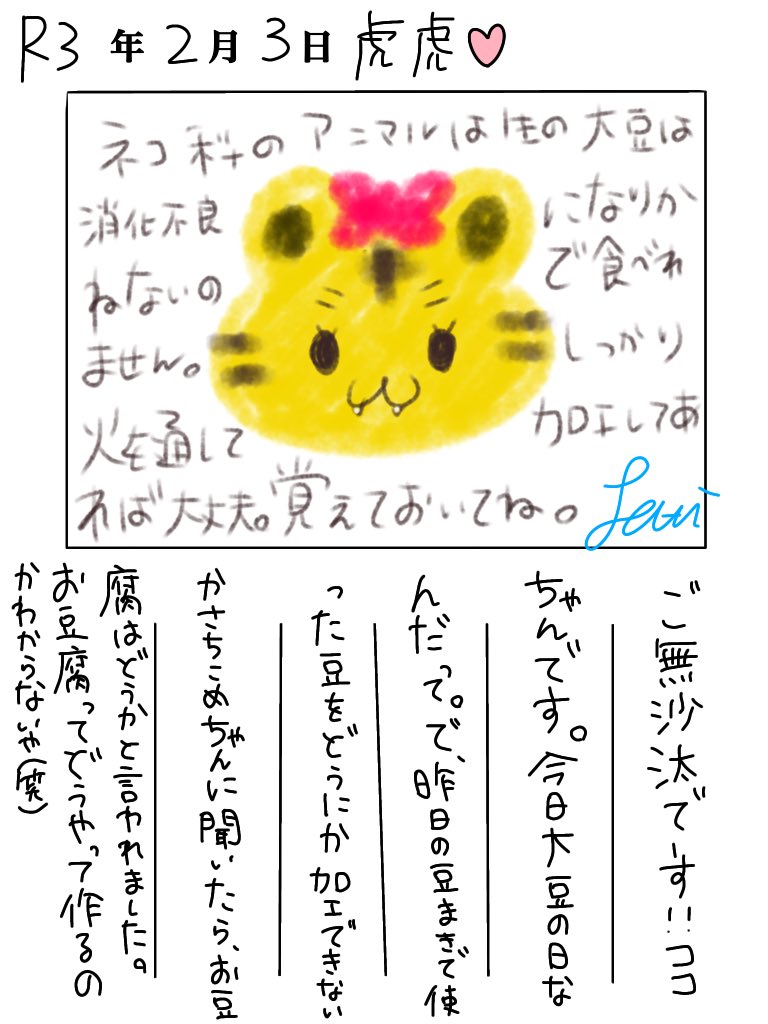 R3年2月3日 虎虎♡
ネコ科のアニマルは生の大豆は
消化不良になりか
ねないので食べれ
ません。しっかり
火を通して加工してあ
れば大丈夫。覚えておいてね。
Levi
ご無沙汰でーす!!ココ
ちゃんです。今日大豆の日な
んだって。で、昨日の豆まきで使
った豆をどうにか加工できない
かさちこめちゃんに聞いたら、お豆
腐はどうかと言われました。
お豆腐ってどうやって作るの
かわからないや(笑)